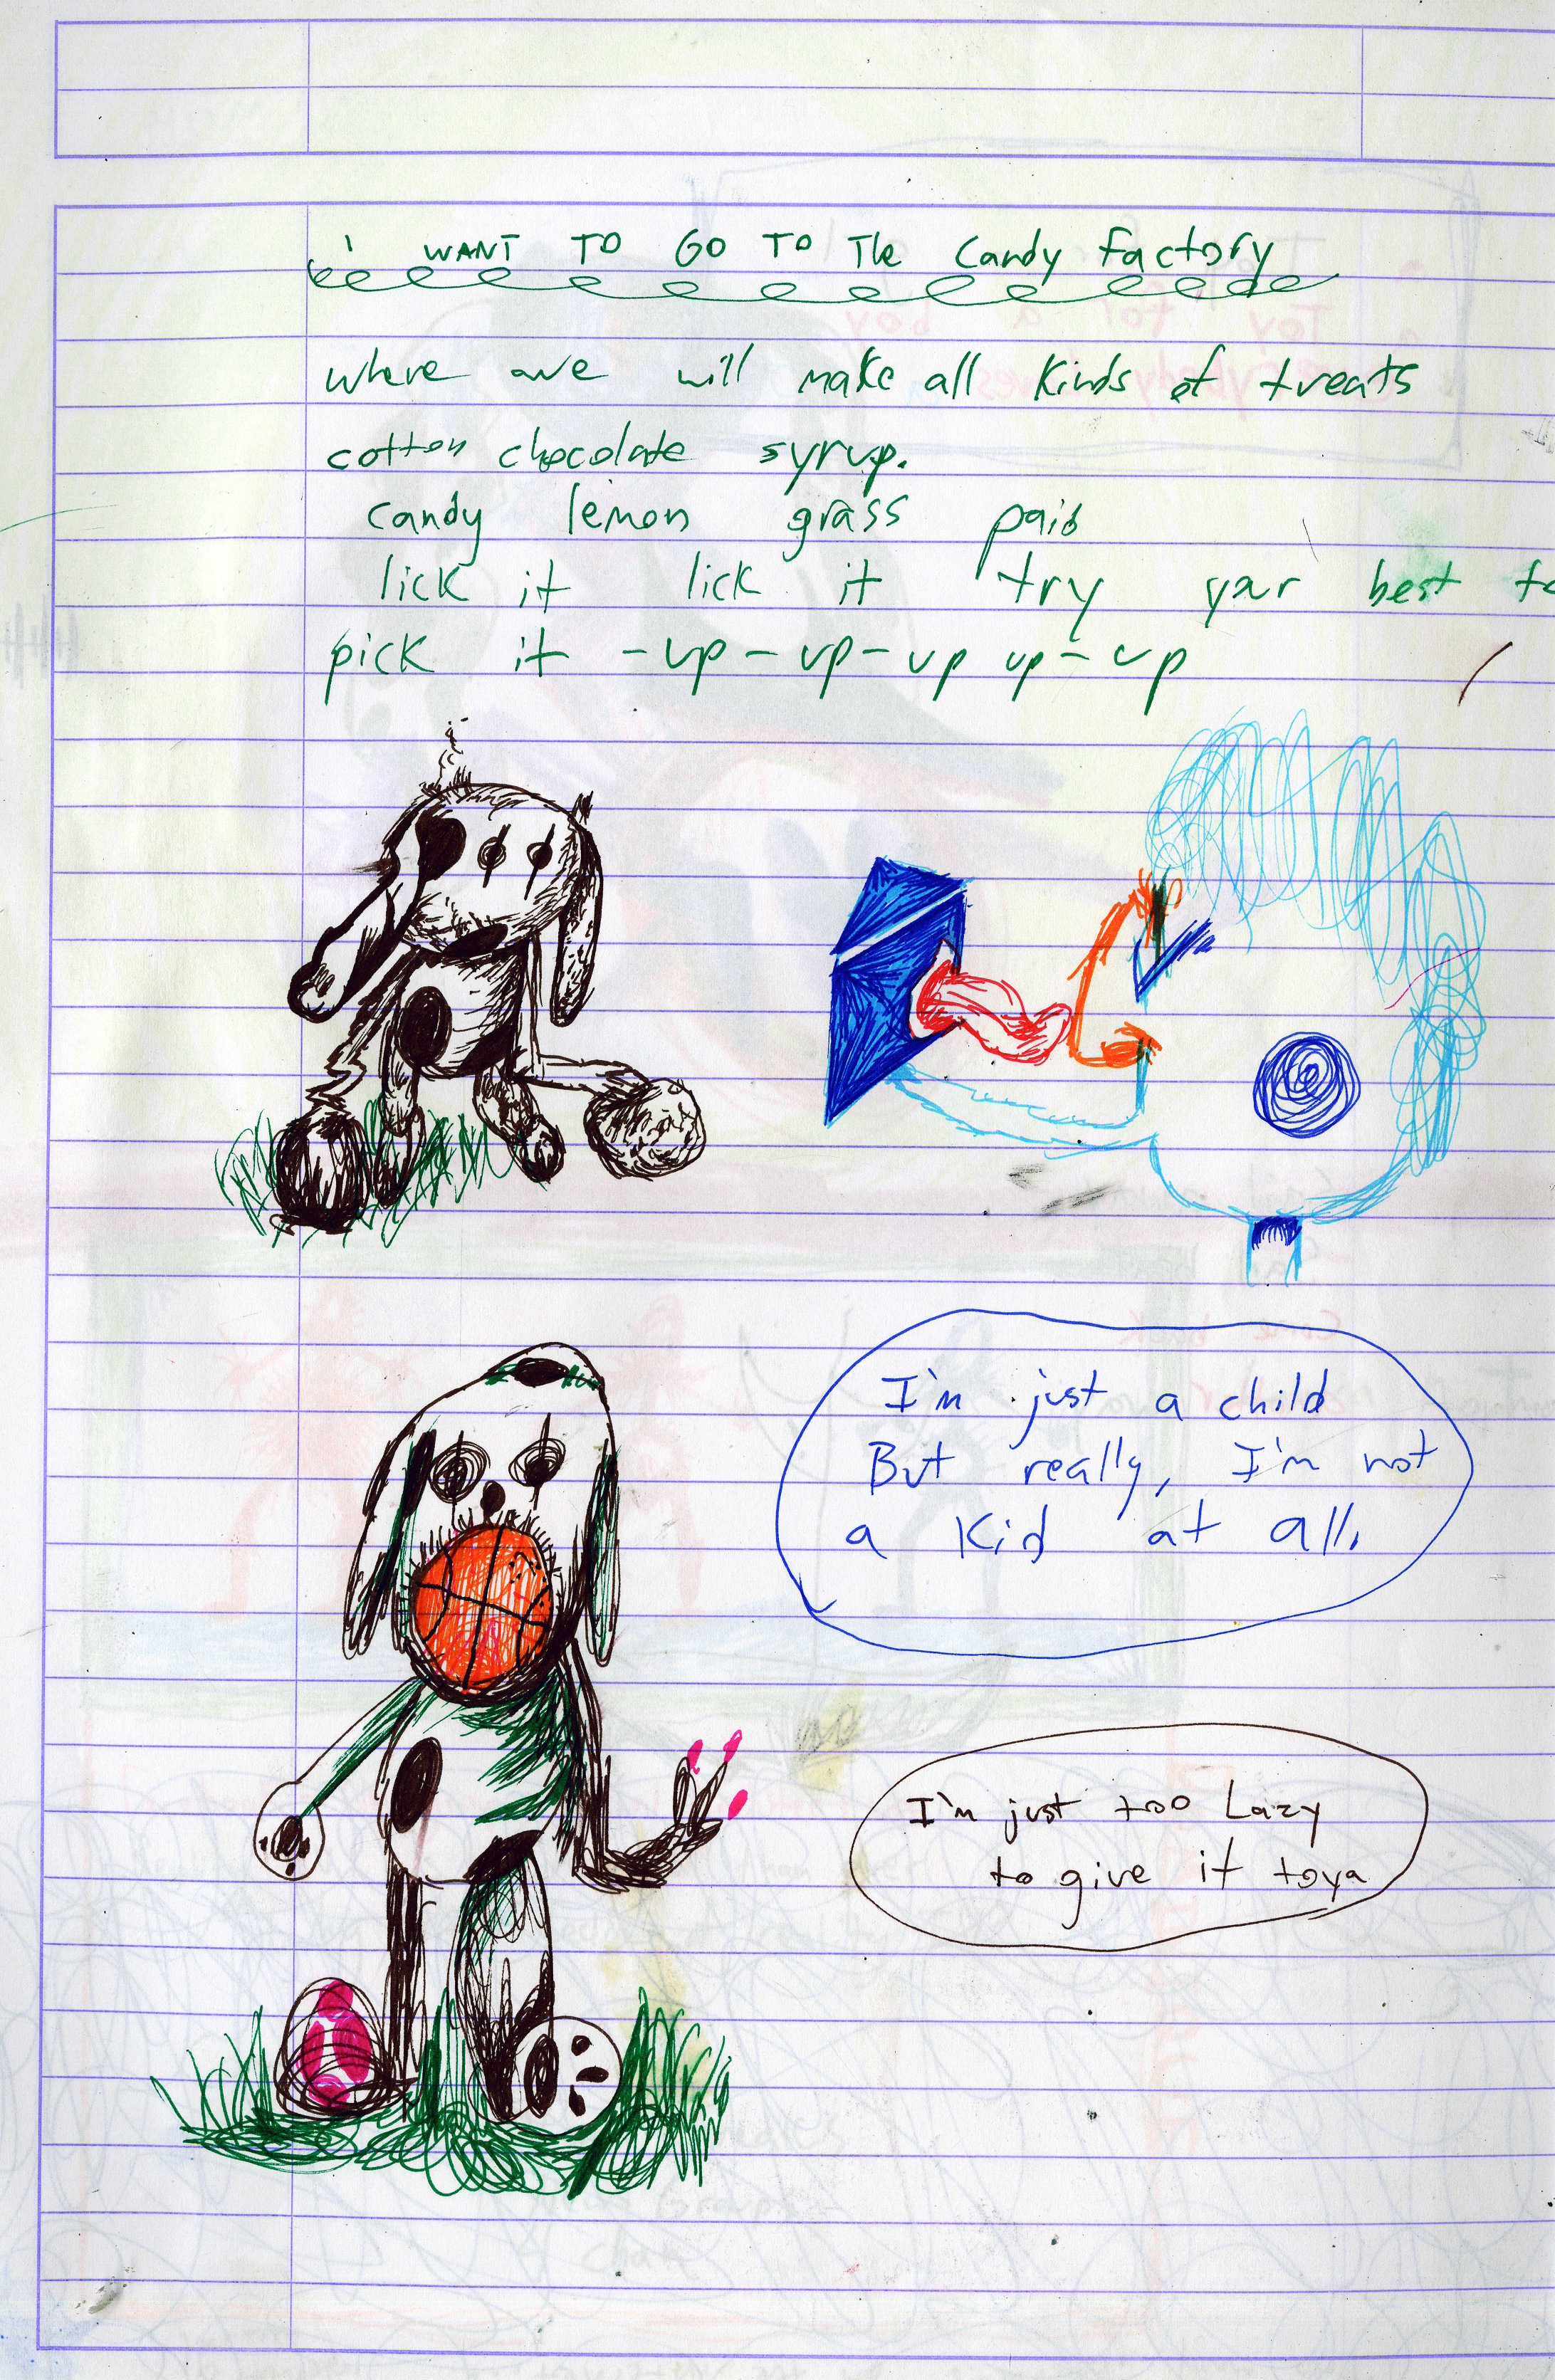 i WANT TO GO TO The Candy factory
where we will make all kinds of treats
cotton chocolate syrup.
candy lemon grass paid
lick it lick it try your best to
pick it - up - up - up up - up
I'm just a child
But really, I'm not
a Kid at all.
I'm just too Lazy
to give it toya